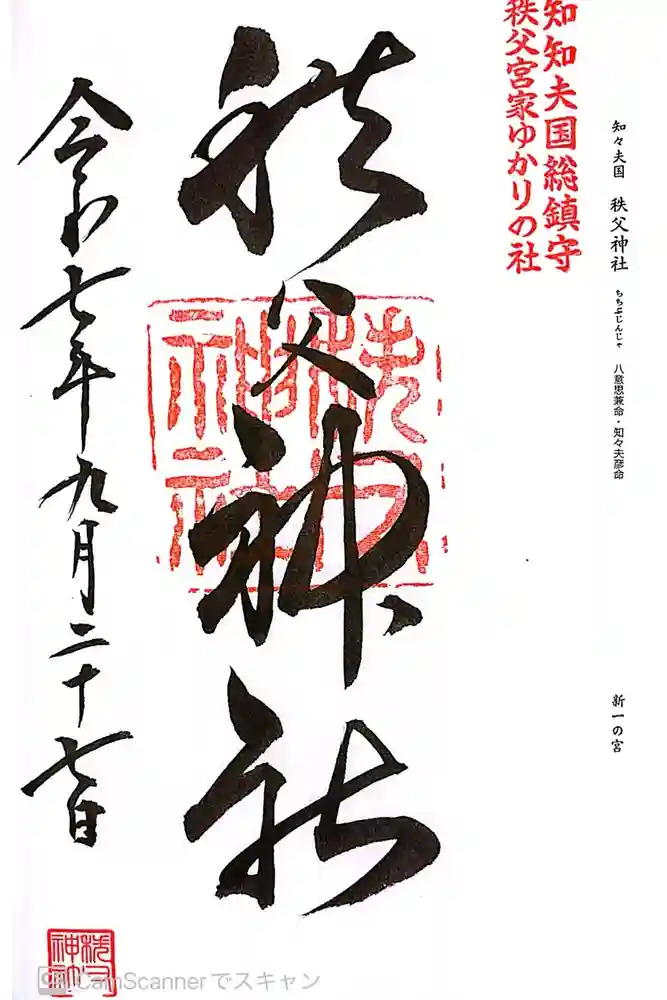 知々夫国 秩父神社 ちちぶじんじゃ 八意思兼命・知々夫彦命 新一の宮
知知夫国総鎮守
秩父宮家ゆかりの社
秩父神社
秩父神社
令和七年九月二十七日
秩父神社
CamScannerでスキャン